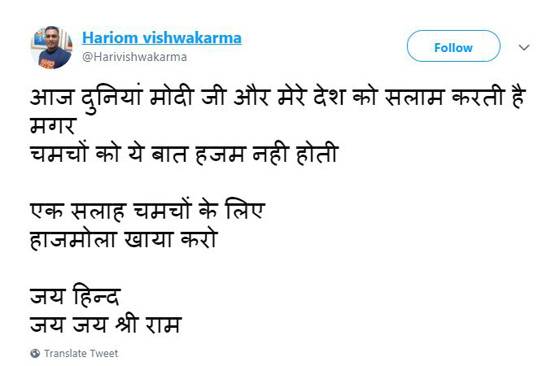 Hariom vishwakarma
@Harivishwakarma
Follow
आज दुनियां मोदी जी और मेरे देश को सलाम करती है
मगर
चमचों को ये बात हजम नही होती
एक सलाह चमचों के लिए
हाजमोला खाया करो
जय हिन्द
जय जय श्री राम
Translate Tweet